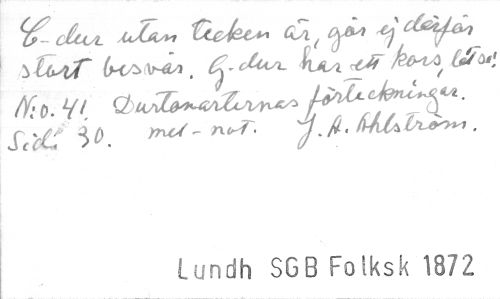 C-dur utan tecken är, gör ej därför
stort besvär. G-dur har ett kors, låt se!
N:o. 41. Durtonarternas förteckningar.
Sid. 30. mel-not. J. A. Ahlström.
Lundh SGB Folksk 1872